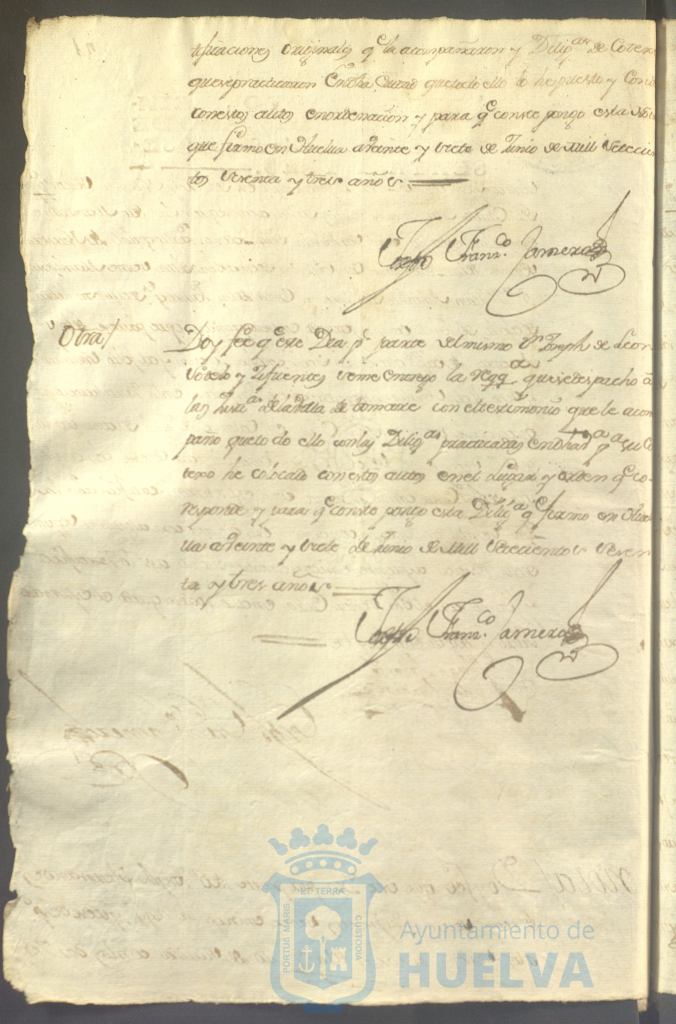 tificaciones originales q.e la acompañaron y Dilig.as de
que se practicaron en dha Ciudad que todo ello lo he puesto y
con estos autos en ordenacion y para q.e conste pongo esta
que firmo en Huelva a veinte y siete de Junio de Mill Setecien
tos setenta y tres años
Joseph Fran.co Camero
Otra/ Doy fee q.e este Dia p.r parte del mismo Dn Joseph de Leon
Sotelo y Zifuentes se me entregó la Reqq.a que se despachó a
las Just.as de la Palata de con el testimonio que le acom
paño que todo ello con las Dilig.as practicadas en
he colocado con estos autos en el Lugar y orden q.e co
rresponde y para q.e conste pongo esta Dilig.a q.e firmo en Huel
va a Veinte y siete de Junio de Mill Setecientos seten
ta y tres años
Joseph Fran.co Camero
PORTUS MARIS
ET TERRÆ
CUSTODIA
Ayuntamiento de
HUELVA